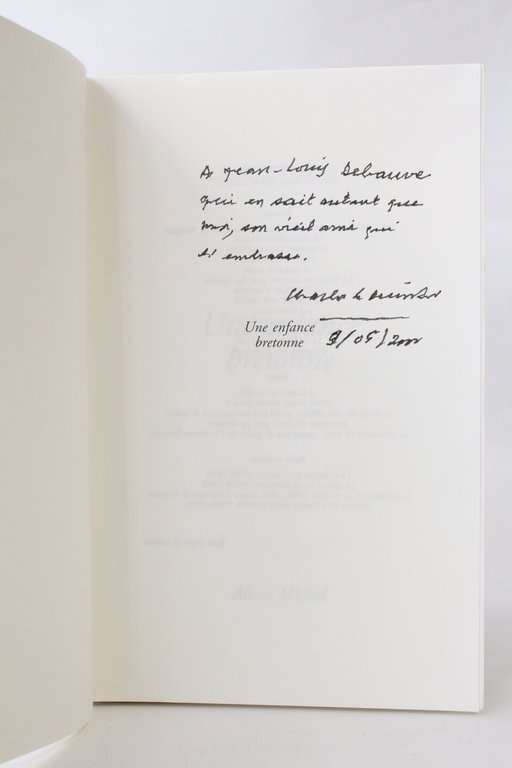 A Jean-Louis Debauve
qui en sait autant que
moi, son vieil ami qui
l'embrasse.
Charles Le Quintrec
Une enfance
bretonne
9/05/2000
Albin Michel